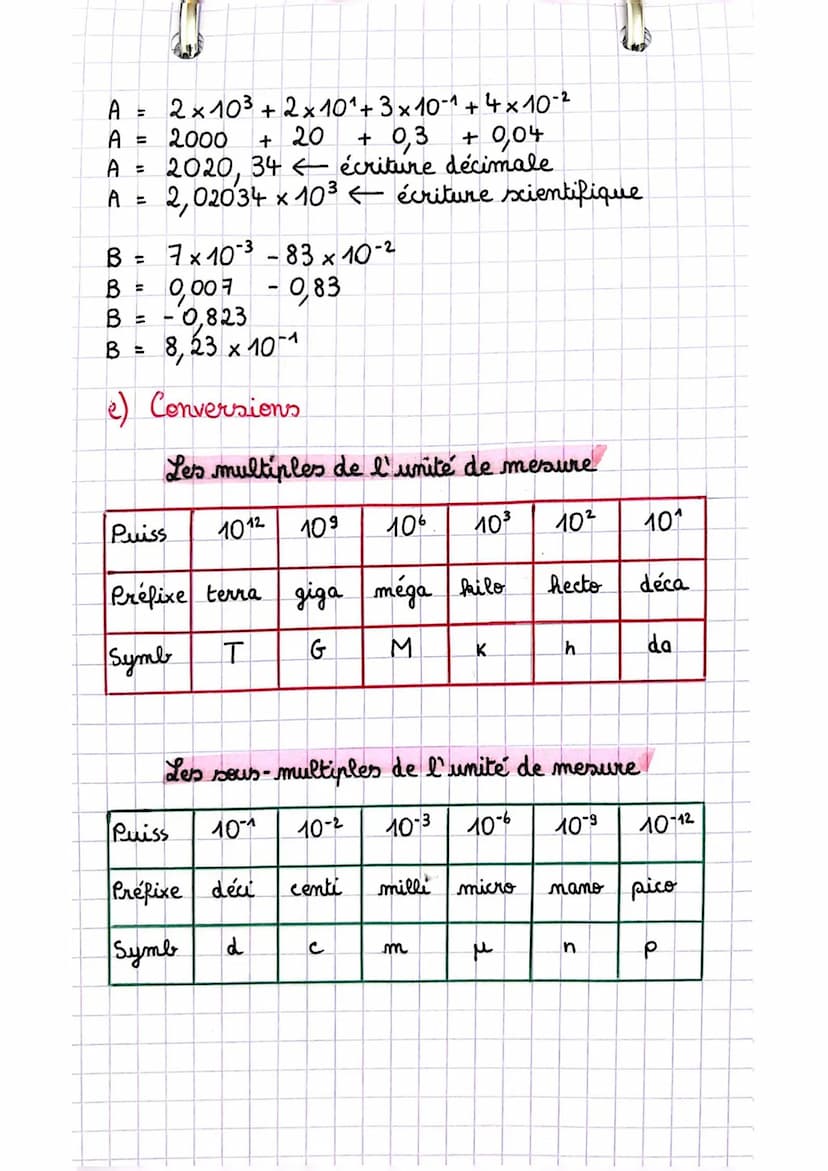 A = 2 × 10³ + 2 × 10¹ + 3 × 10⁻¹ + 4 × 10⁻²
A = 2000 + 20 + 0,3 + 0,04
A = 2020,34 ← écriture décimale
A = 2,02034 × 10³ ← écriture scientifique
B = 7 × 10⁻³ - 83 × 10⁻²
B = 0,007 - 0,83
B = - 0,823
B = 8,23 × 10⁻¹
e) Conversions
Les multiples de l'unité de mesure
Puiss 10¹² 10⁹ 10⁶ 10³ 10² 10¹
Préfixe terra giga méga kilo hecto déca
Symb T G M K h da
Les sous-multiples de l'unité de mesure
Puiss 10⁻¹ 10⁻² 10⁻³ 10⁻⁶ 10⁻⁹ 10⁻¹²
Préfixe déci centi milli micro nano pico
Symb d c m µ n p